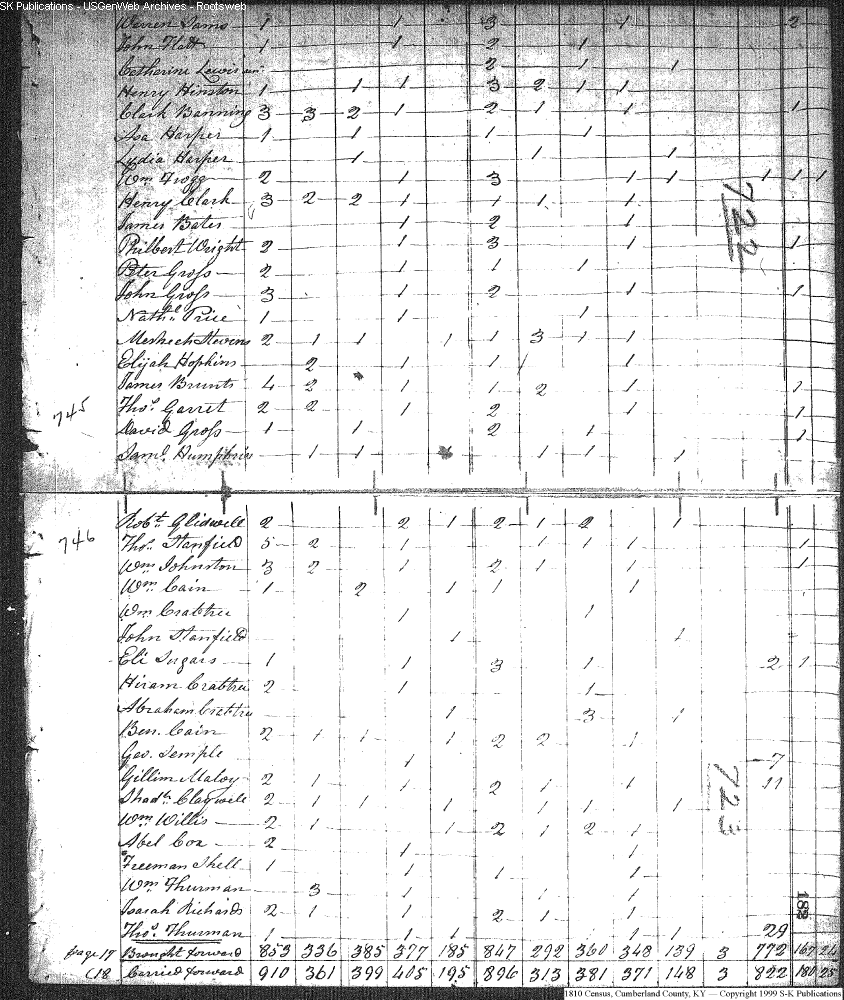 SK Publications - USGenWeb Archives - Rootsweb
Warren Sams 1 1 3 1 2
John Flatt 1 1 2 1
Catherine Lewis 2 1 1
Henry Hinston 1 1 1 3 2 1 1
Clark Banning 3 3 2 1 2 1 1 1
Asa Harper 1 1 1 1
Lydia Harper 1 1 1
Wm Frogg 2 1 3 1 1 1 1 1
722
Henry Clark 3 2 2 1 1 1 1
James Bates 1 2 1
Philbert Wright 2 1 3 1 1
Peter Gross 2 1 1 1
John Gross 3 1 2 1 1
Nathl. Price 1 1 1
Meshech Stevens 2 1 1 1 1 3 1 1
Elijah Hopkins 2 1 1 1
James Brunts 4 2 1 1 2 1 1
745
Thos. Garret 2 2 1 2 1 1
David Gross 1 1 2 1 1
Saml. Humphries 1 1 1 1 1
746
Robt. Glidwell 2 2 1 2 1 2 1
Thos. Stanfield 5 2 1 1 1 1 1
Wm Johnston 3 2 1 2 1 1 1
Wm Cain 1 2 1 1 1
Wm Crabtree 1 1
John Stanfield 1 1
Eli Sugars 1 1 3 1 2 1
Hiram Crabtree 2 1 1
Abraham Crabtree 1 3 1
Ben. Cain 2 1 1 1 2 2 1
Geo. Semple 1 7
Gillim Maloy 2 1 1 2 1 1 11
723
Shadk. Claywell 2 1 1 1 1 1 1
Wm Willis 2 1 1 2 1 2 1
Abel Cox 2 1 1
Freeman Shell 1 1 1 1
Wm Thurman 3 1 1 1
Isaiah Richards 2 1 1 2 1 1
182
Thos. Thurman 1 1 1 1 29
page 17 Brought forward 853 336 385 377 185 847 292 360 348 139 3 772 167 24
18 Carried forward 910 361 399 405 195 896 313 381 371 148 3 822 180 25
1810 Census, Cumberland County, KY — Copyright 1999 S-K Publications